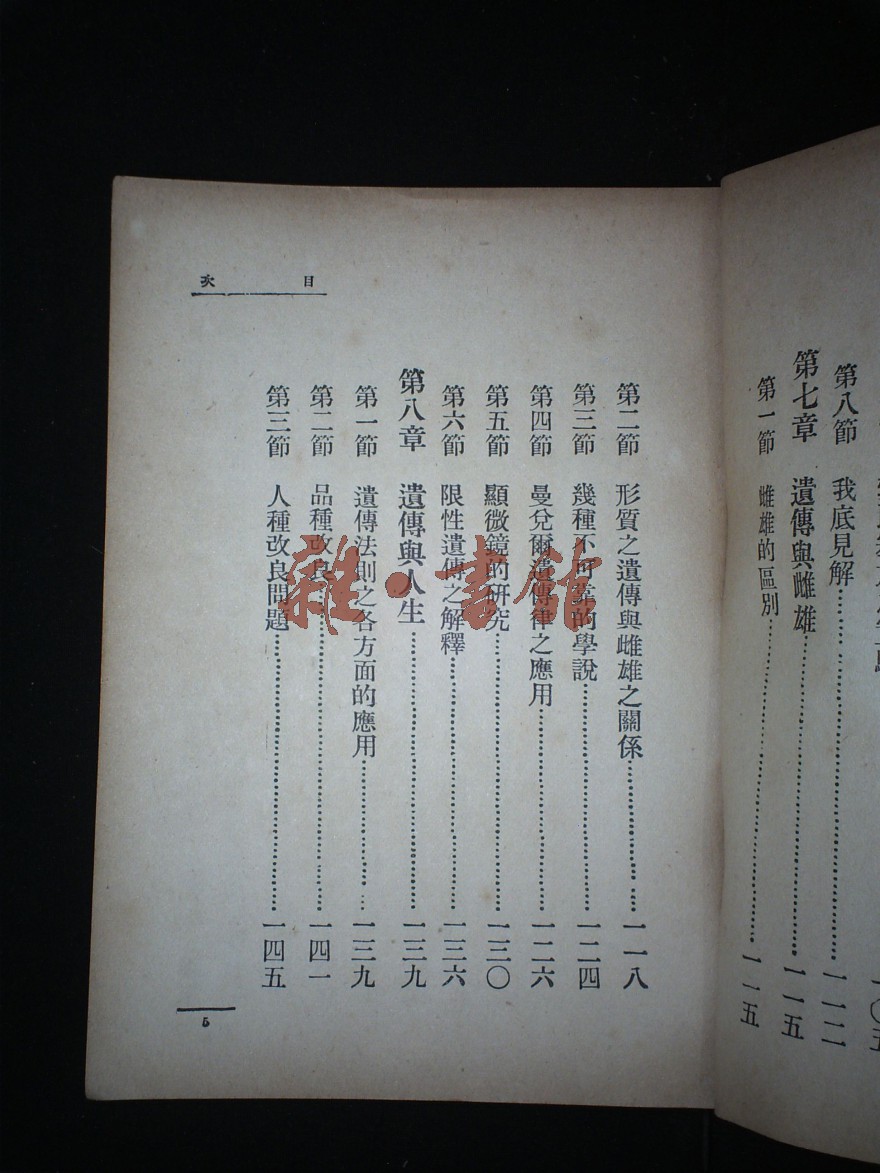 第八節 我底見解 一一二
第七章 遺傳與雌雄 一一五
第一節 雌雄的區別 一一五
目次
第二節 形質之遺傳與雌雄之關係 一一八
第三節 幾種不可靠的學說 一二四
第四節 曼兌爾遺傳律之應用 一二六
第五節 顯微鏡的研究 一三〇
第六節 限性遺傳之解釋 一三六
第八章 遺傳與人生 一三九
第一節 遺傳法則之各方面的應用 一三九
第二節 品種改良 一四一
第三節 人種改良問題 一四五
5
雜·書館